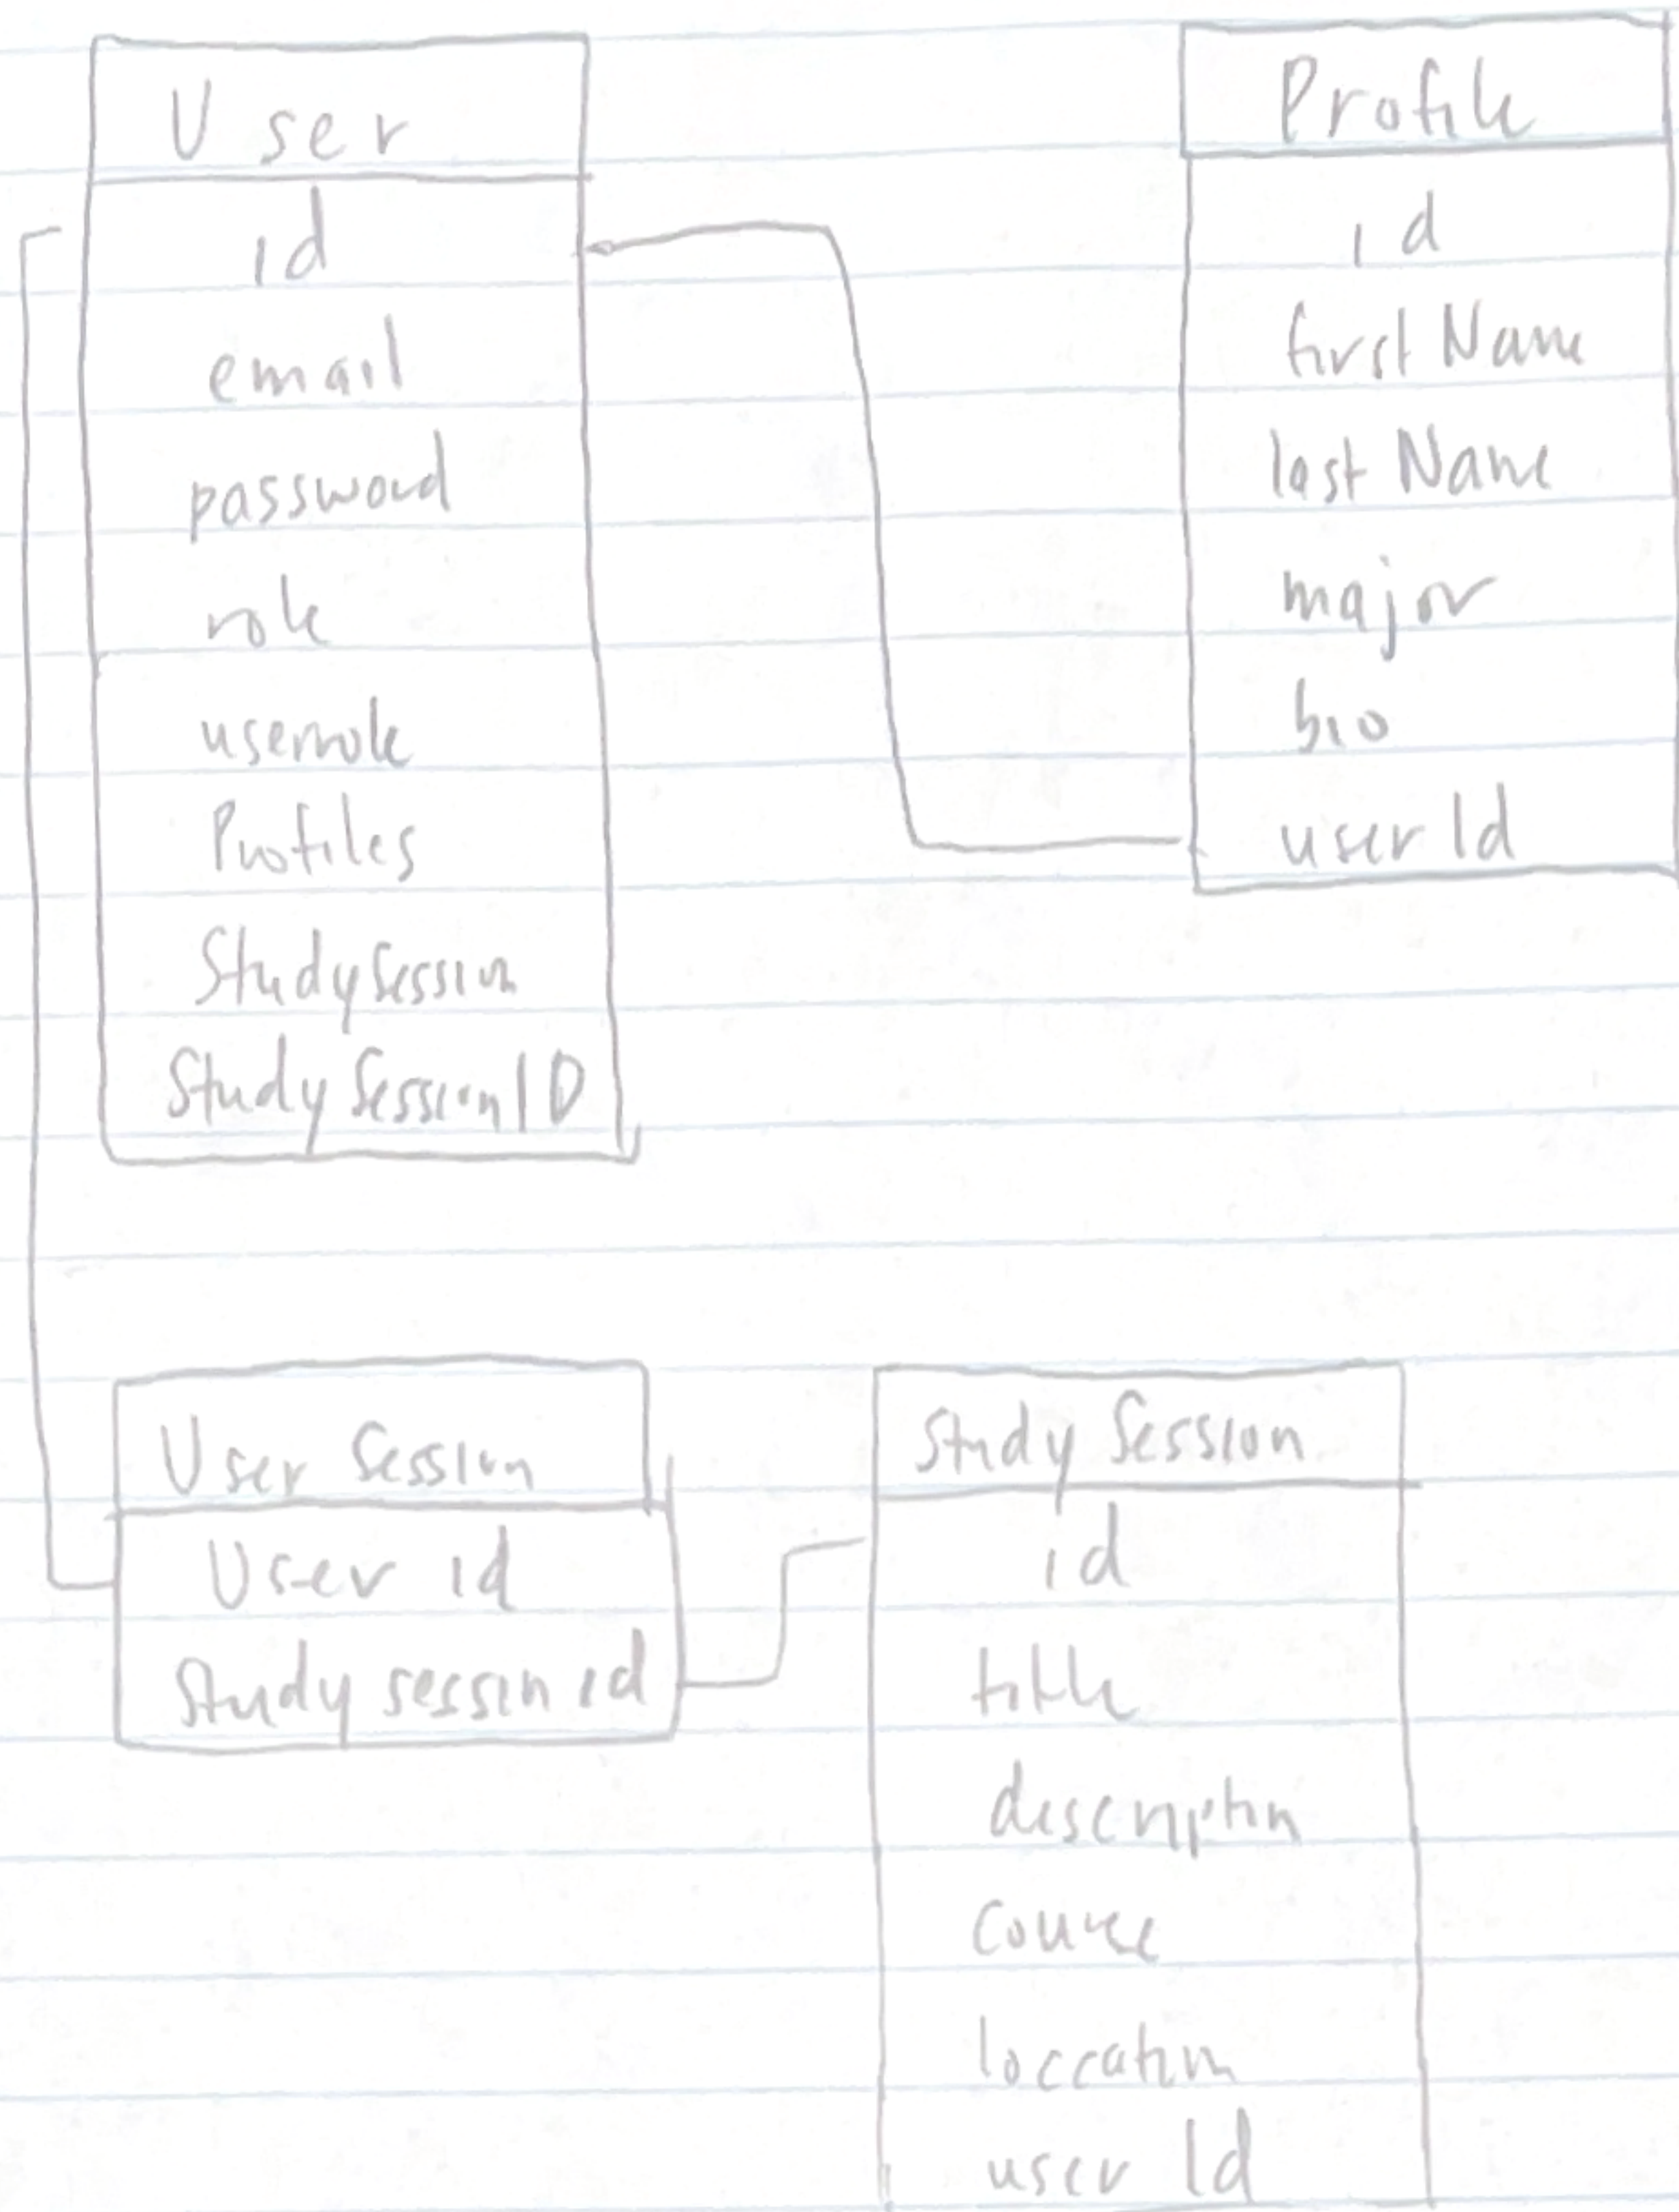 User
id
email
password
role
userrole
Profiles
StudySession
StudySessionID
Profile
id
firstName
lastName
major
bio
userId
User Session
User id
Study session id
Study Session
id
title
description
course
loccation
user Id